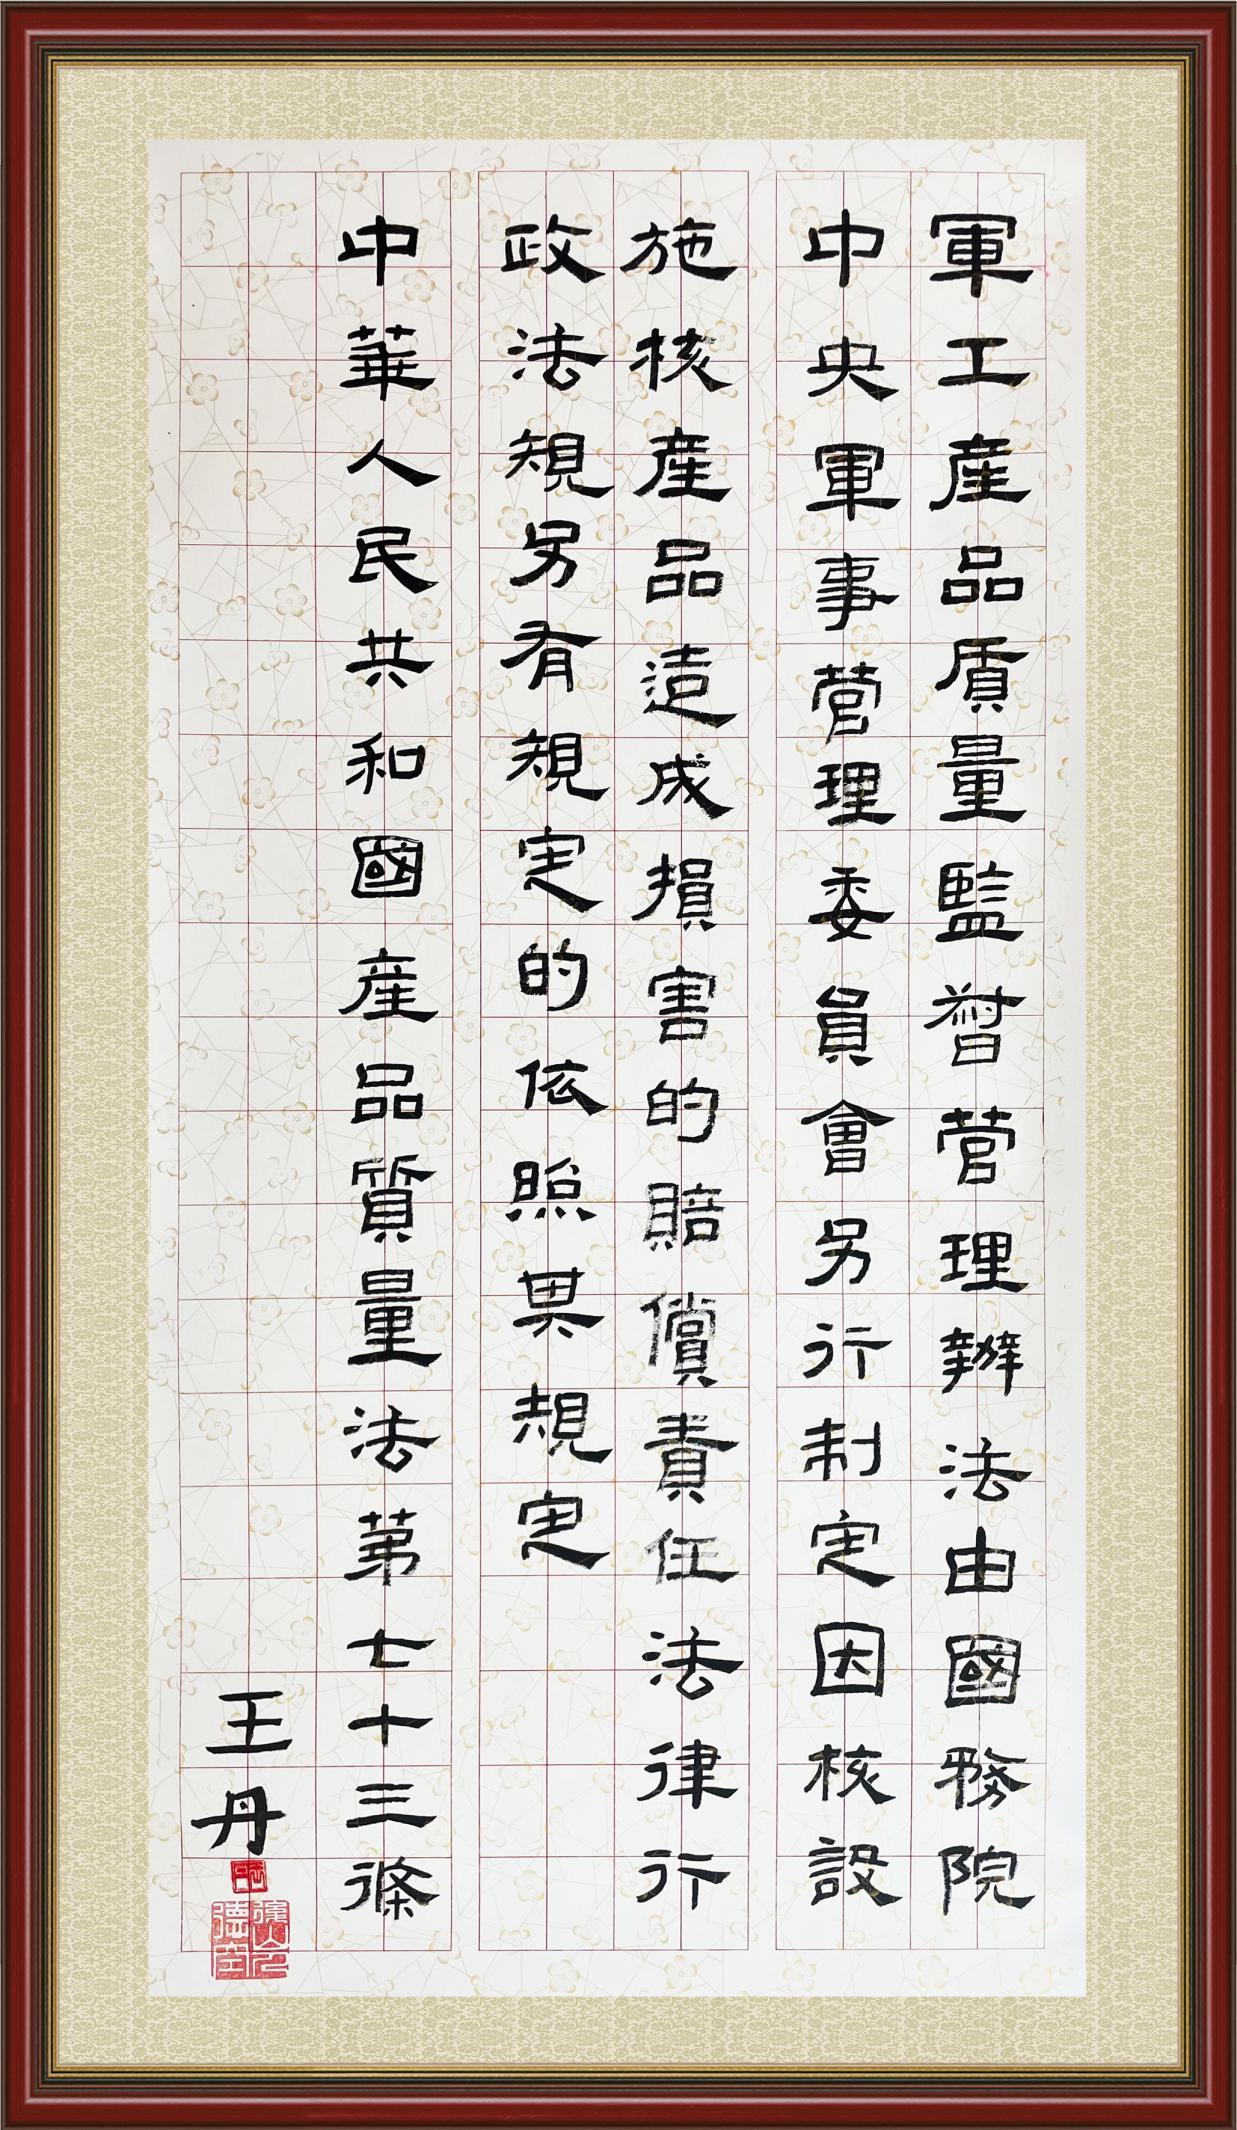 軍工産品质量監督营理辦法由國務院
中央軍事营理委員會另行制定因核設
施核産品造成損害的賠償責任法律行
政法規另有規定的依照其規定
中華人民共和國産品質量法第七十三條
王丹